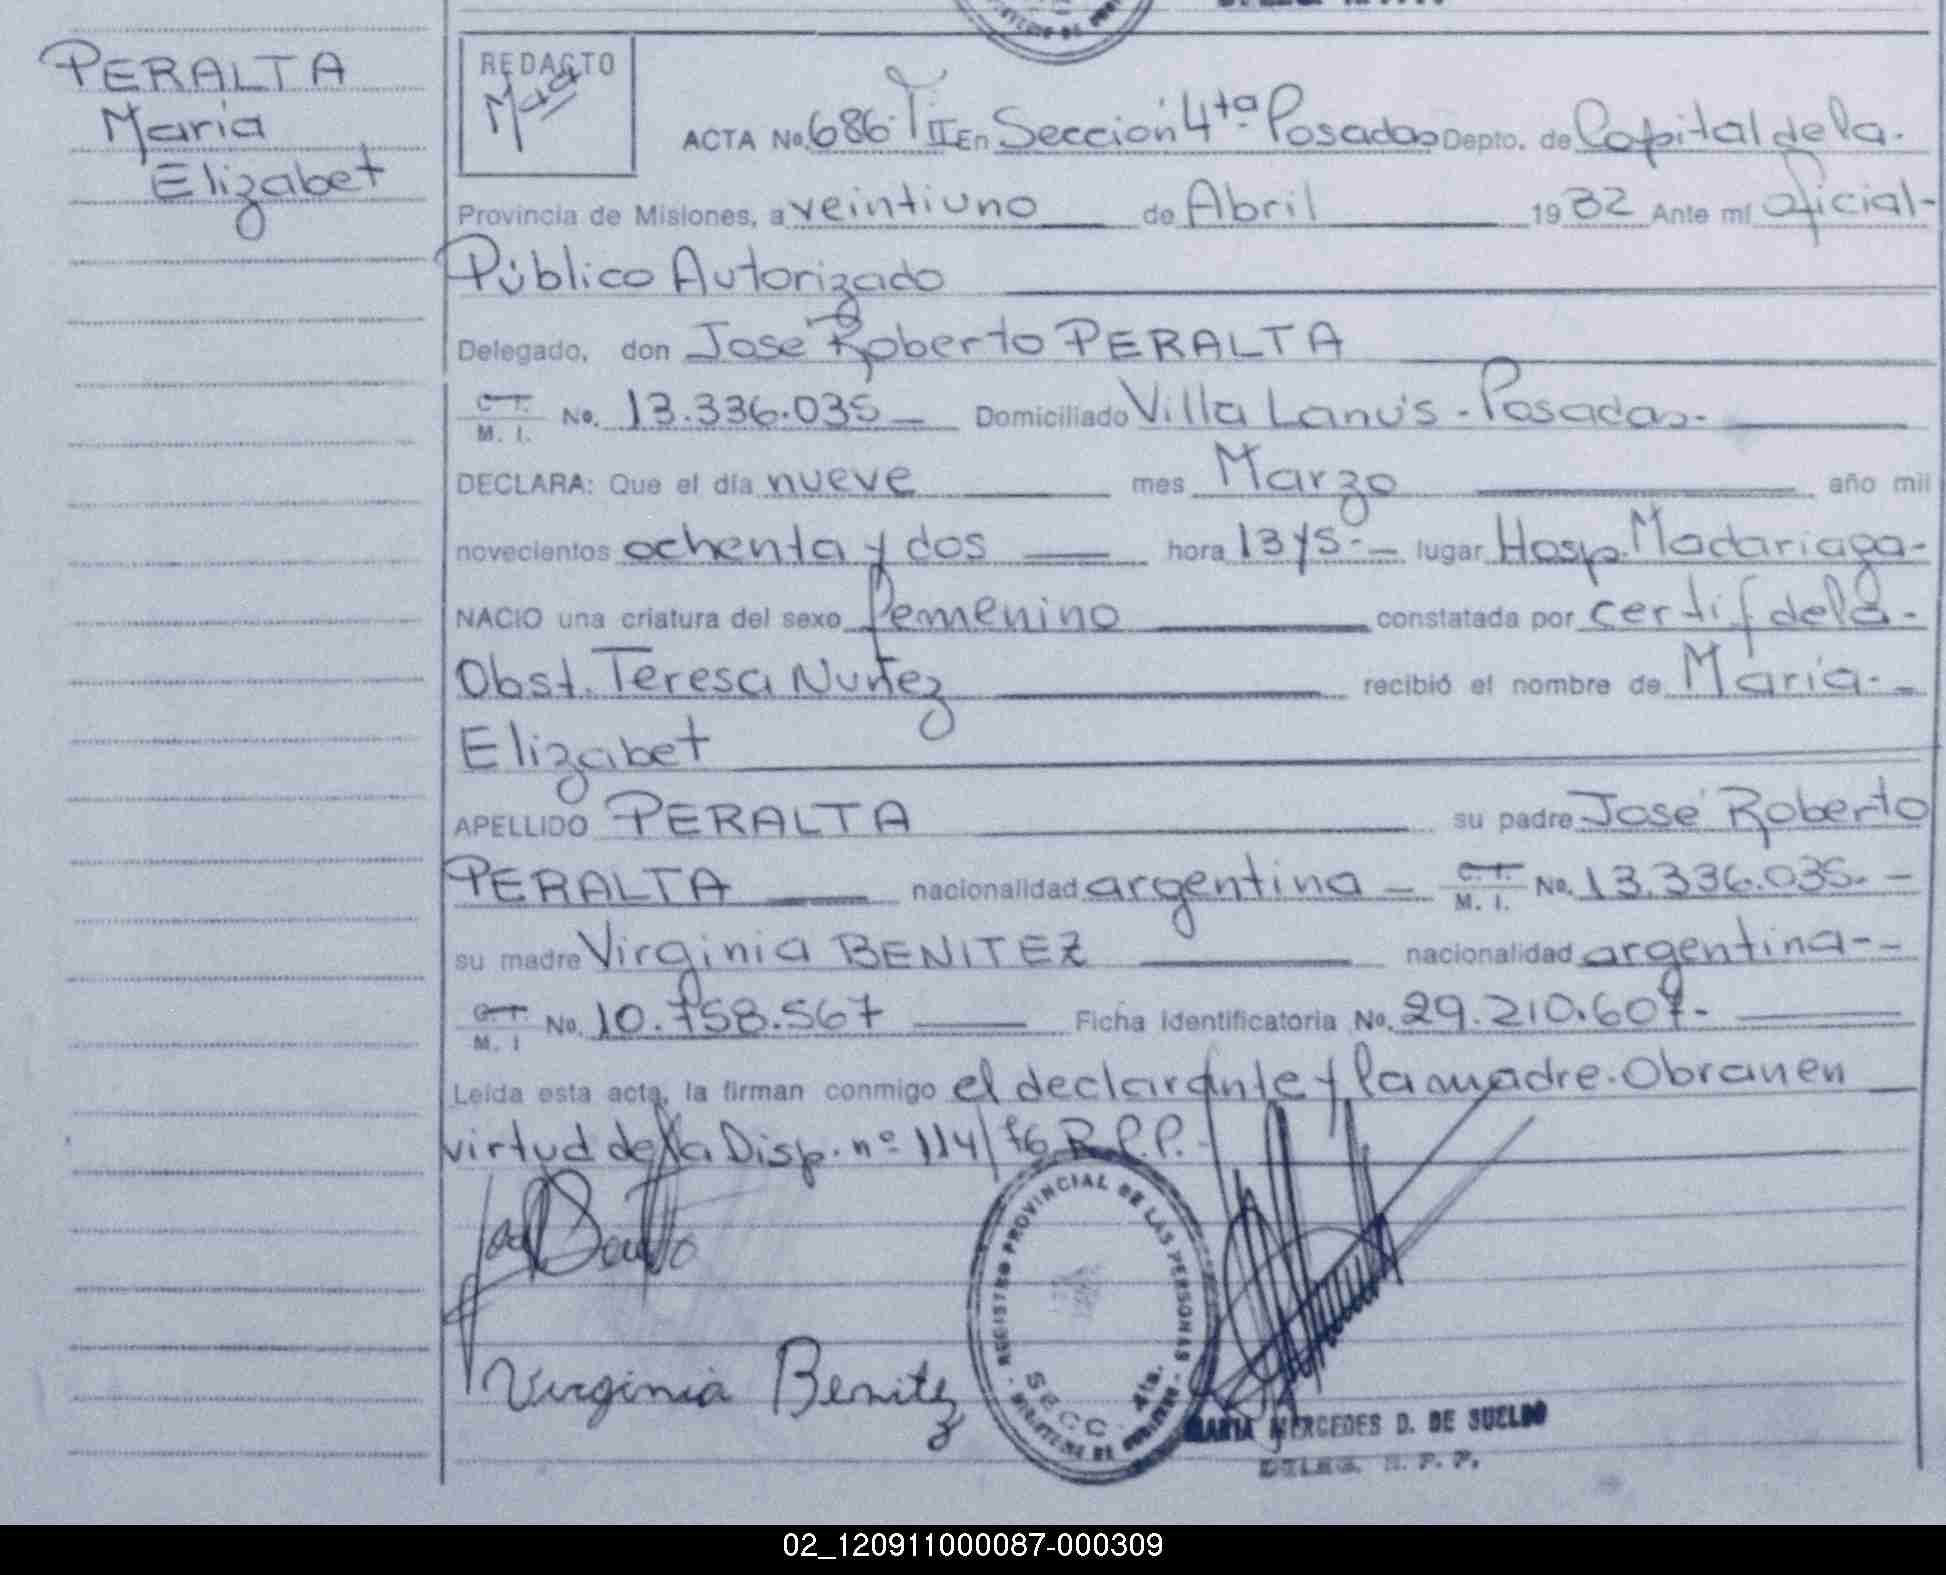 PERALTA
María
Elizabet
REDACTO
ACTA No. 686 T II En Sección 4ta. Posadas Depto. de Capital de la.
Provincia de Misiones, a veintiuno de Abril 1982 Ante mí oficial-
Público Autorizado
Delegado, don José Roberto PERALTA
C.I. M. I. No. 13.336.035 Domiciliado Villa Lanús - Posadas.-
DECLARA: Que el día nueve mes Marzo año mil
novecientos ochenta y dos hora 13 y 5.- lugar Hosp. Madariaga-
NACIO una criatura del sexo femenino constatada por certif de la-
Obst. Teresa Nuñez recibió el nombre de María-
Elizabet
APELLIDO PERALTA su padre José Roberto
PERALTA nacionalidad argentina C.I. M. I. No. 13.336.035.-
su madre Virginia BENITEZ nacionalidad argentina--
C.I. M. I No. 10.758.567 Ficha Identificatoria No. 29.210.607.-
Leída esta acta, la firman conmigo el declarante y la madre. Obran en
virtud de la Disp. nº 114/76 R.P.P.-
REGISTRO PROVINCIAL DE LAS PERSONAS
SECC. 4ta.
Virginia Benitez
MARIA MERCEDES D. DE SUELDO
DELEG. R. P. P.
02_120911000087-000309